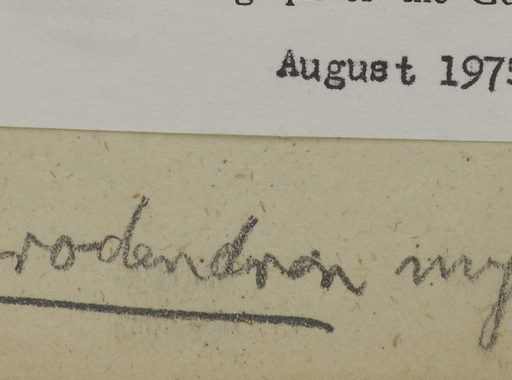 August 1975
rodendron my